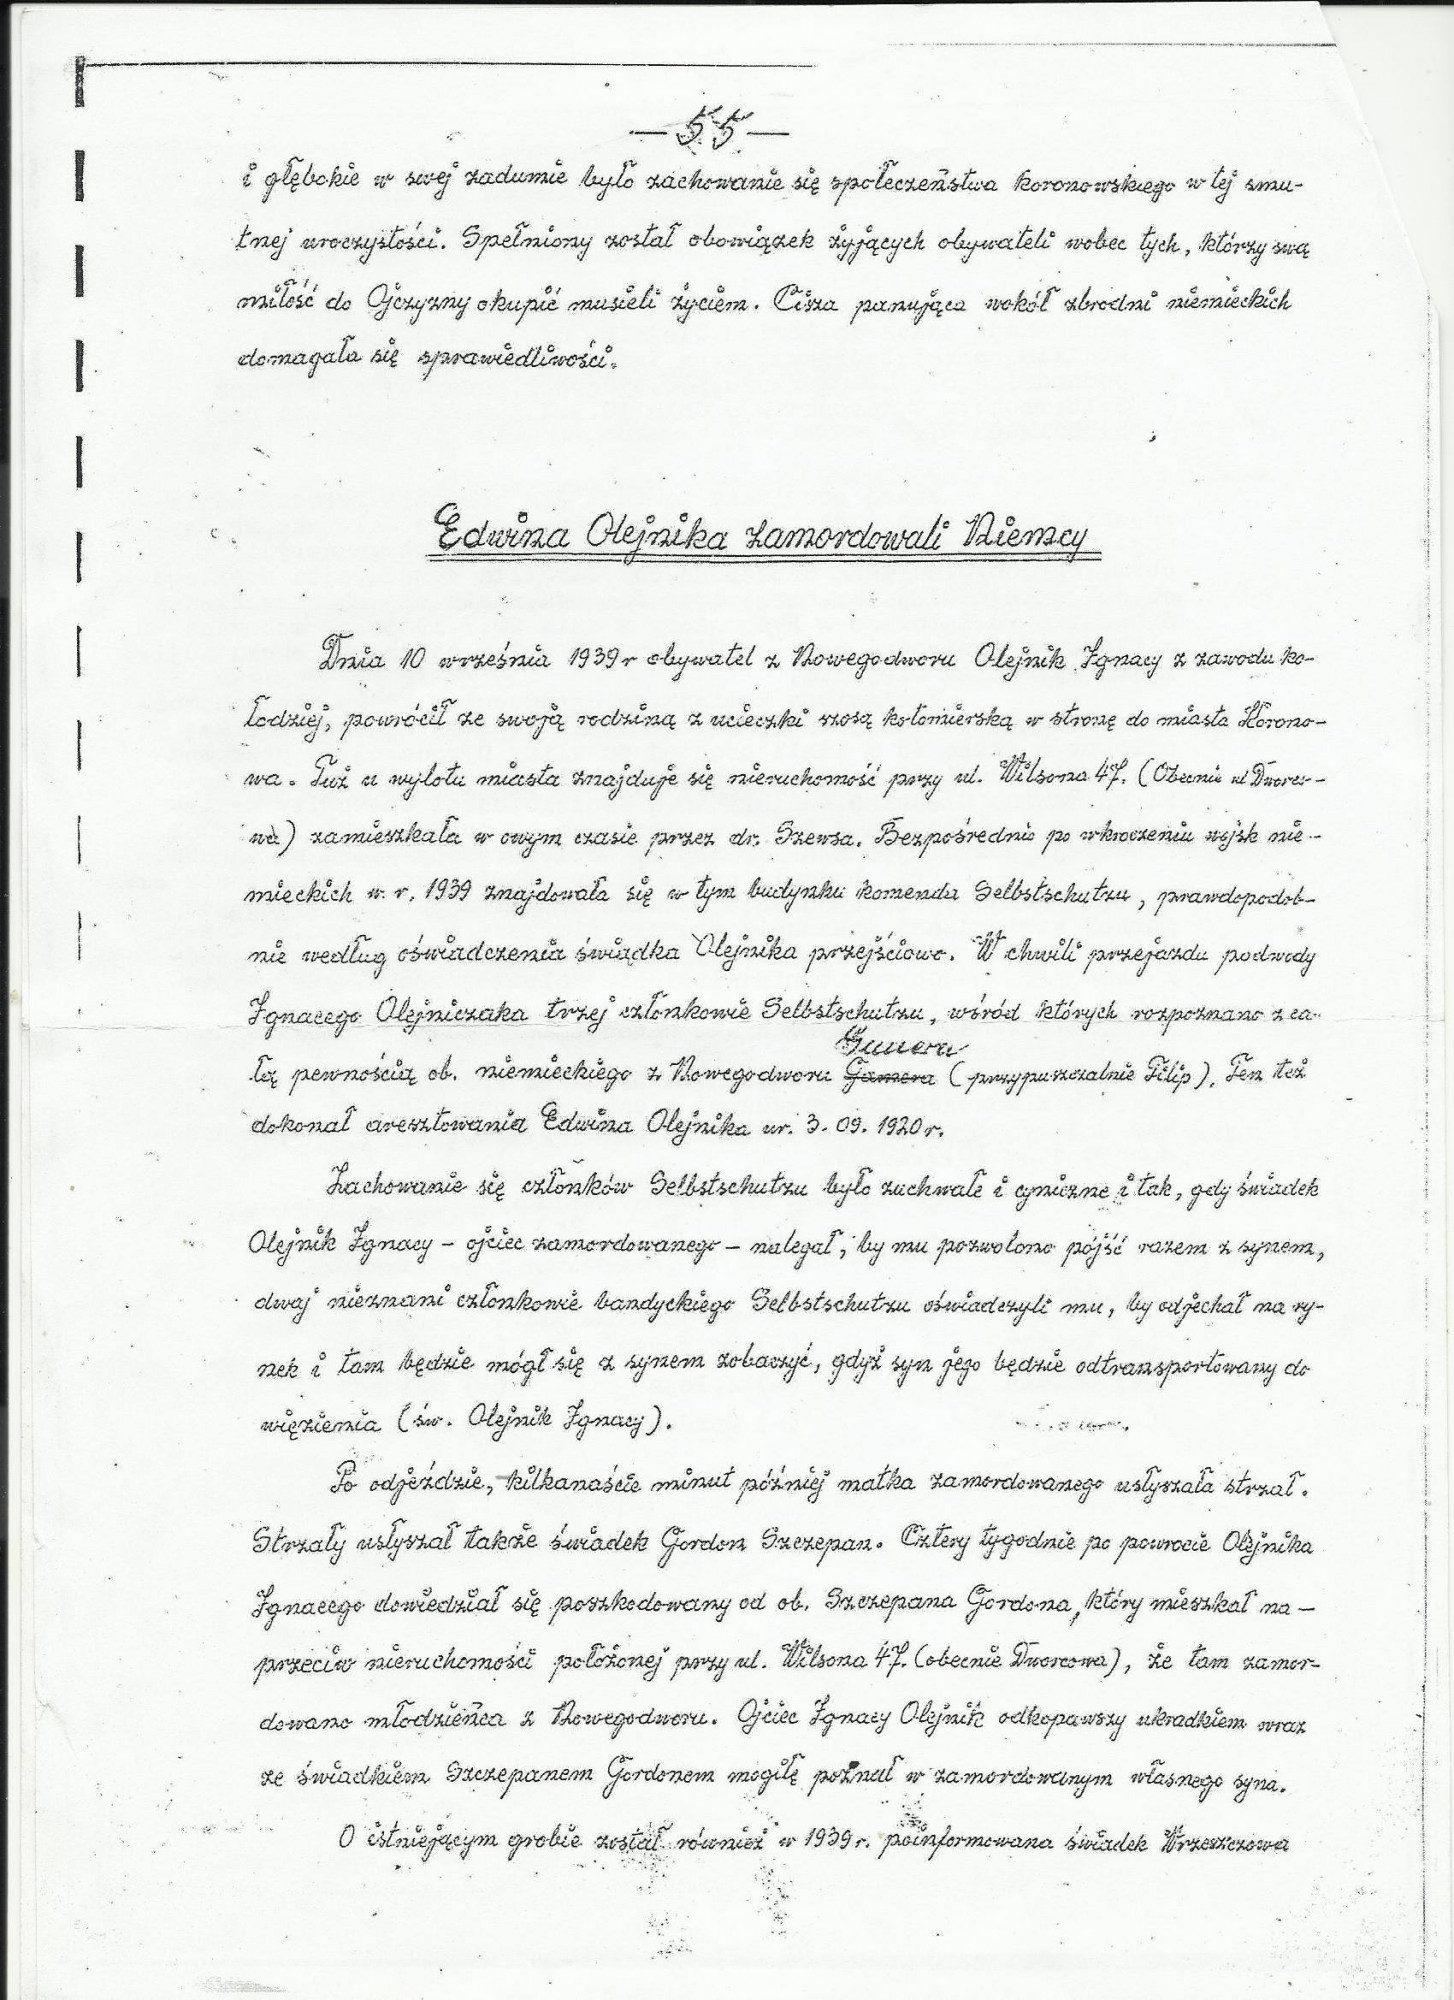 — 55 —
i głębokie w swej zadumie było zachowanie się społeczeństwa koronowskiego w tej smu-
tnej uroczystości. Spełniony został obowiązek żyjących obywateli wobec tych, którzy swą
miłość do Ojczyzny okupić musieli życiem. Cisza panująca wokół zbrodni niemieckich
domagała się sprawiedliwości.
Edwina Olejnika zamordowali Niemcy
Dnia 10 września 1939 r obywatel z Nowegodworu Olejnik Ignacy z zawodu ko-
łodziej, powrócił ze swoją rodziną z ucieczki szosą kotomierską w stronę do miasta Korono-
wa. Tuż u wylotu miasta znajduje się nieruchomość przy ul. Wilsona 47. (Obecnie ul Dworco-
wa) zamieszkała w owym czasie przez dr. Szewsa. Bezpośrednio po wkroczeniu wojsk nie-
mieckich w r. 1939 znajdowała się w tym budynku komenda Selbstschutzu, prawdopodob-
nie według oświadczenia świadka Olejnika przejściowo. W chwili przejazdu podwody
Ignacego Olejniczaka trzej członkowie Selbstschutzu, wśród których rozpoznano z ca-
łą pewnością ob. niemieckiego z Nowegodworu Gamera (przypuszczalnie Filip). Ten też
dokonał aresztowania Edwina Olejnika ur. 3. 09. 1920 r.
Zachowanie się członków Selbstschutzu było zuchwałe i cyniczne i tak, gdy świadek
Olejnik Ignacy – ojciec zamordowanego – nalegał, by mu pozwolono pójść razem z synem,
dwaj nieznani członkowie bandyckiego Selbstschutzu oświadczyli mu, by odjechał na ry-
nek i tam będzie mógł się z synem zobaczyć, gdyż syn jego będzie odtransportowany do
więzienia (św. Olejnik Ignacy).
Po odjeździe, kilkanaście minut później matka zamordowanego usłyszała strzał.
Strzały usłyszał także świadek Gordon Szczepan. Cztery tygodnie po powrocie Olejnika
Ignacego dowiedział się poszkodowany od ob. Szczepana Gordona, który mieszkał na-
przeciw nieruchomości położonej przy ul. Wilsona 47. (obecnie Dworcowa), że tam zamor-
dowano młodzieńca z Nowegodworu. Ojciec Ignacy Olejnik odkopawszy ukradkiem wraz
ze świadkiem Szczepanem Gordonem mogiłę poznał w zamordowanym własnego syna.
O istniejącym grobie został również w 1939 r. poinformowana świadek Wrzeszczowa